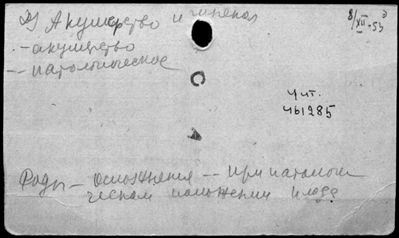 Д) Акушерство и гинекол
8/XII-53 э
- акушерство
-- патологическое
чит.
461285
Роды - осложнения -- при патологи
ческом положении плода